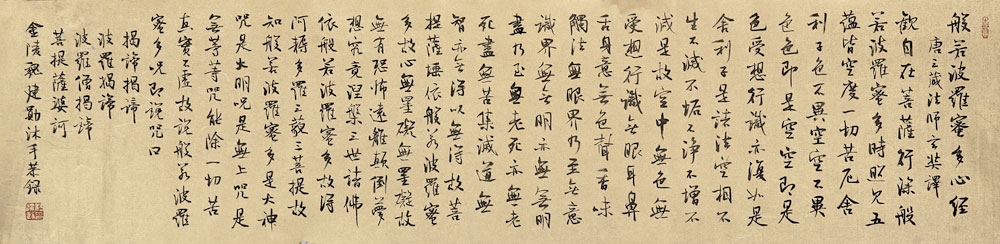 般若波羅蜜多心經
唐三藏法師玄奘譯
觀自在菩薩行深般
若波羅蜜多時照見五
蘊皆空度一切苦厄舍
利子色不異空空不異
色色即是空空即是
色受想行識亦復如是
舍利子是諸法空相不
生不滅不垢不淨不增不
減是故空中無色無
受想行識無眼耳鼻
舌身意無色聲香味
觸法無眼界乃至無意
識界無無明亦無無明
盡乃至無老死亦無老
死盡無苦集滅道無
智亦無得以無所得故菩
提薩埵依般若波羅蜜
多故心無罣礙無罣礙故
無有恐怖遠離顛倒夢
想究竟涅槃三世諸佛
依般若波羅蜜多故得
阿耨多羅三藐三菩提故
知般若波羅蜜多是大神
咒是大明咒是無上咒是
無等等咒能除一切苦
真實不虛故說般若波羅
蜜多咒即說咒曰
揭諦揭諦
波羅揭諦
波羅僧揭諦
菩提薩婆訶
金陵魏建勛沐手恭錄